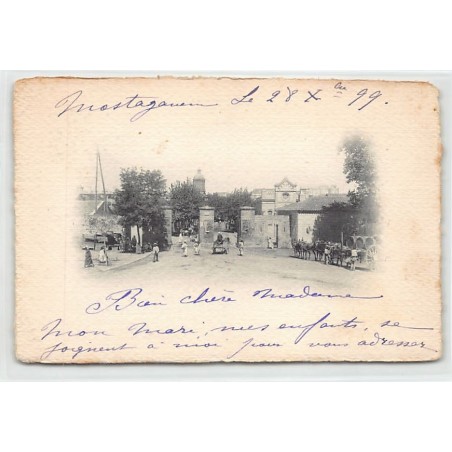 Mostaganem Le 28 Xbre 99.
Bien chère Madame
Mon Mari, mes enfants, se
joignent à moi pour vous adresser